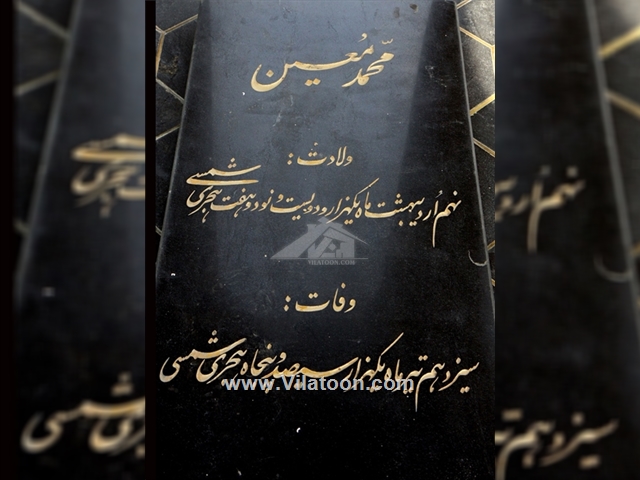 محمّد مُعین
ولادت :
نهم اُردیبهشت ماه یکهزار و دویست و نود و هفت هجری شمسی
VILATOON.COM
وفات :
سیزدهم تیرماه یکهزار و سیصد و پنجاه هجری شمسی
www.Vilatoon.com